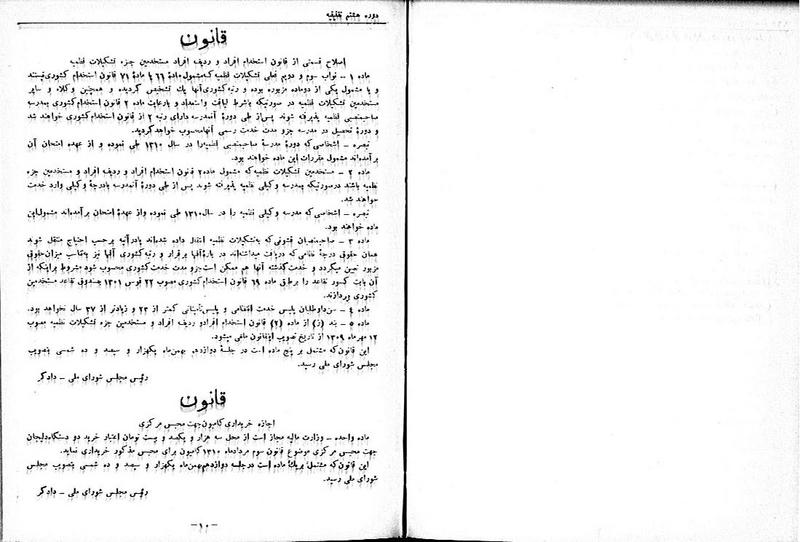 دوره هشتم تقنینیه
قانون
اصلاح قسمتی از قانون استخدام افراد و ردیف افراد مستخدمین جزء تشکیلات نظمیه
ماده ۱ – نواب سوم و دویم فعلی تشکیلات نظمیه که مشمول ماده ٦٦ یا ماده ۷۱ قانون استخدام کشوری نیستند
و یا مشمول یکی از دو ماده مزبوره بوده و رتبه کشوری آنها یک تشخیص گردیده و همچنین وکلاء و سایر
مستخدمین تشکیلات نظمیه در صورتیکه باشرط لیاقت واستعداد و بارعایت ماده ۲ قانون استخدام کشوری بمدرسه
صاحبمنصبی نظمیه پذیرفته شوند پس از طی دوره آنمدرسه دارای رتبه ۲ از قانون استخدام کشوری خواهند شد
و دورهٔ تحصیل در مدرسه جزو مدت خدمت رسمی آنها محسوب خواهد گردید.
تبصره – اشخاصی که دورهٔ مدرسهٔ صاحبمنصبی نظمیه را در سال ۱۳۱۰ طی نموده و از عهده امتحان آن
برآمده‌اند مشمول مقررات این ماده خواهند بود.
ماده ۲ – مستخدمین تشکیلات نظمیه که مشمول ماده ۲ قانون استخدام افراد و ردیف افراد و مستخدمین جزء
نظمیه باشند در صورتیکه بمدرسه وکیلی نظمیه پذیرفته شوند پس از طی دورهٔ آنمدرسه بادرجهٔ وکیلی وارد خدمت
خواهند شد.
تبصره – اشخاصی که مدرسه وکیلی نظمیه را در سال ۱۳۱۰ طی نموده واز عهدهٔ امتحان برآمده‌اند مشمول این
ماده خواهند بود.
ماده ۳ – صاحبمنصبان قشونی که بتشکیلات نظمیه انتقال داده شده‌اند یادرآتیه برحسب احتیاج منتقل شوند
همان حقوق درجهٔ نظامی که دریافت میداشته‌اند در بارهٔ آنها برقرار و رتبه کشوری آنها نیز بتناسب میزان حقوق
مزبور تعیین میگردد و خدمت گذشته آنها هم ممکن است جزو مدت خدمت کشوری محسوب شود مشروط براینکه از
آن بابت کسور تقاعد را برطبق ماده ٦٩ قانون استخدام کشوری مصوب ۲۲ قوس ۱۳۰۱ بصندوق تقاعد مستخدمین
کشوری بپردازند.
ماده ٤ – سن داوطلبان پلیس خدمت انتظامی و پلیس تأمیناتی کمتر از ۲۲ و زیادتر از ۳۷ سال نخواهد بود.
ماده ٥ – بند (ز) از ماده (۲) قانون استخدام افراد و ردیف افراد و مستخدمین جزء تشکیلات نظمیه مصوب
۱۲ مهرماه ۱۳۰۹ از تاریخ تصویب این قانون ملغی میشود.
این قانون که مشتمل بر پنج ماده است در جلسهٔ دوازدهم بهمن ماه یکهزار و سیصد و ده شمسی بتصویب
مجلس شورای ملی رسید.
رئیس مجلس شورای ملی – دادگر
قانون
اجازه خریداری کامیون جهت محبس مرکزی
ماده واحده – وزارت مالیه مجاز است از محل سه هزار و یکصد و بیست تومان اعتبار خرید دو دستگاه دلیجان
جهت محبس مرکزی موضوع قانون سوم مردادماه ۱۳۱۰ کامیون برای محبس مذکور خریداری نماید.
این قانون که مشتمل بر یک ماده است در جلسه دوازدهم بهمن ماه یکهزار و سیصد و ده شمسی بتصویب مجلس
شورای ملی رسید.
رئیس مجلس شورای ملی – دادگر
–۱۰–